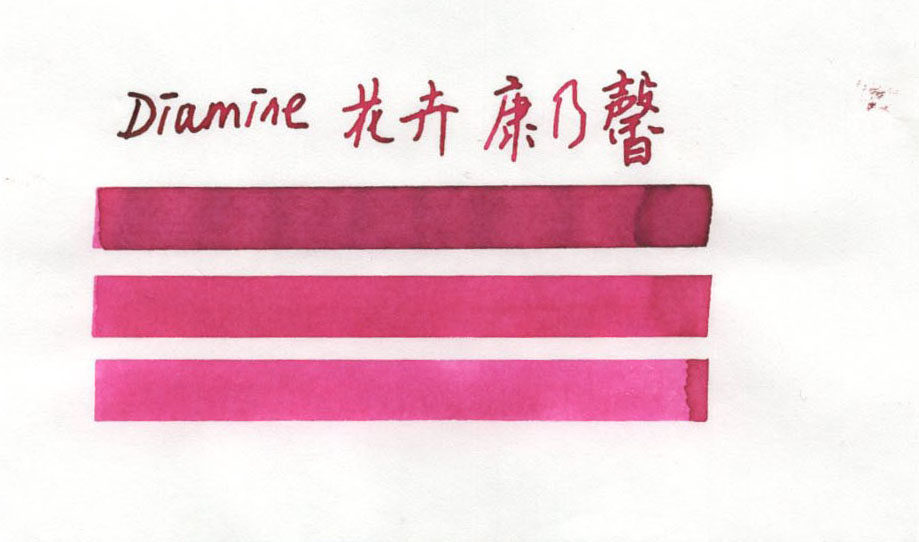 Diamine 花卉 康乃馨